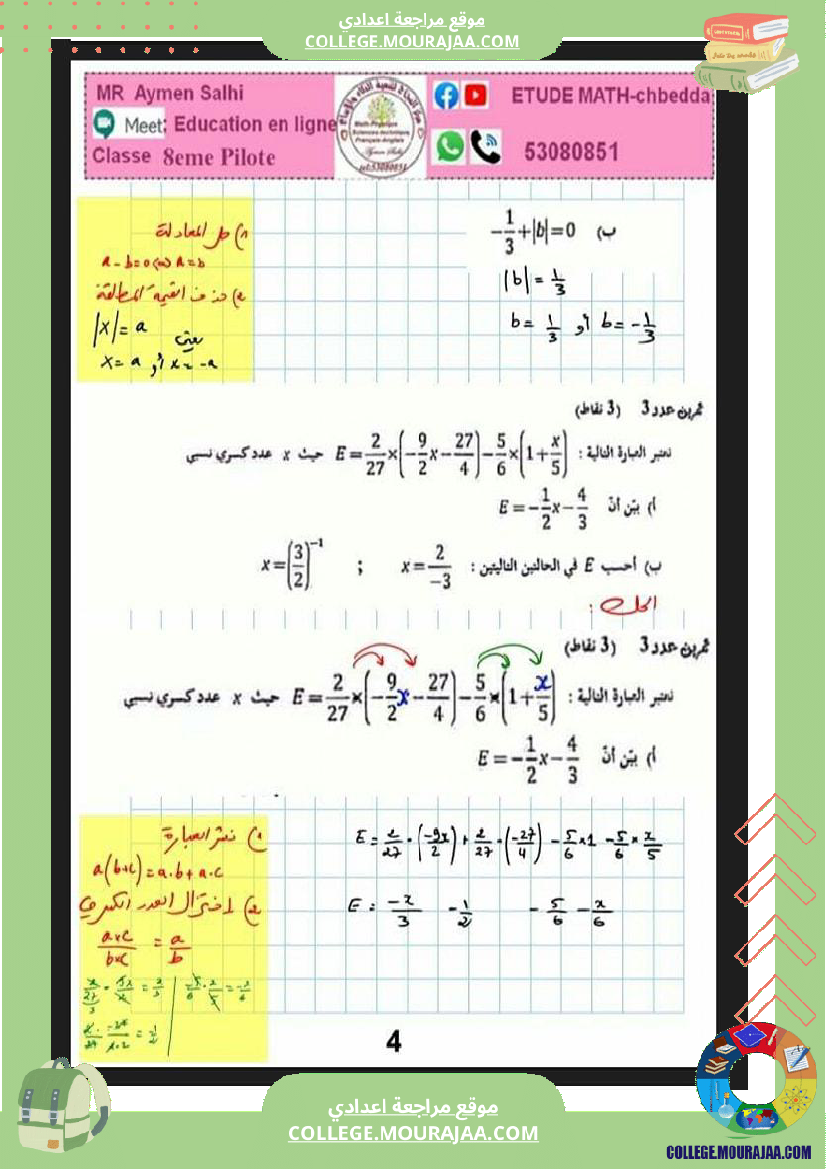 موقع مراجعة اعدادي
COLLEGE.MOURAJAA.COM
MR Aymen Salhi
Meet: Education en ligne
Classe 8eme Pilote
ETUDE MATH-chbedda
53080851
1) حل المعادلة
a - b = 0 (يعني) a = b
2) حذف القيمة المطلقة
|x| = a
يعني
x = a أو x = -a
ب) -1/3+|b|=0
|b| = 1/3
b = 1/3 أو b = -1/3
تمرين عدد 3 (3 نقاط)
نعتبر العبارة التالية : E = 2/27×(-9/2x-27/4)-5/6×(1+x/5) حيث x عدد كسري نسبي
أ) بيّن أنّ E = -1/2x-4/3
ب) أحسب E في الحالتين التاليتين : x = 2/-3 ; x = (3/2)^-1
الحل :
تمرين عدد 3 (3 نقاط)
نعتبر العبارة التالية : E = 2/27×(-9/2x-27/4)-5/6×(1+x/5) حيث x عدد كسري نسبي
أ) بيّن أنّ E = -1/2x-4/3
1) نشر العبارة
a(b+c) = a.b + a.c
2) اختزال العدد الكسري
a×c/b×c = a/b
E = 2/27 . (-9x/2) + 2/27 . (-27/4) - 5/6 × 1 - 5/6 × x/5
E = -x/3 - 1/2 - 5/6 - x/6
4
موقع مراجعة اعدادي
COLLEGE.MOURAJAA.COM
COLLEGE.MOURAJAA.COM